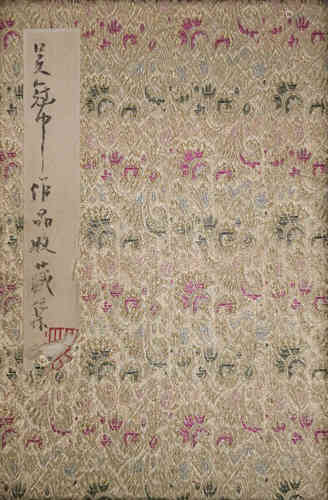 吴冠中作品收藏集